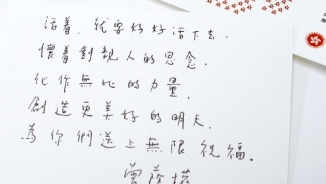 活着，就要好好活下去。
懷着對親人的思念，
化作無比的力量，
創造更美好的明天，
為你們送上無限祝福。
曾蔭權